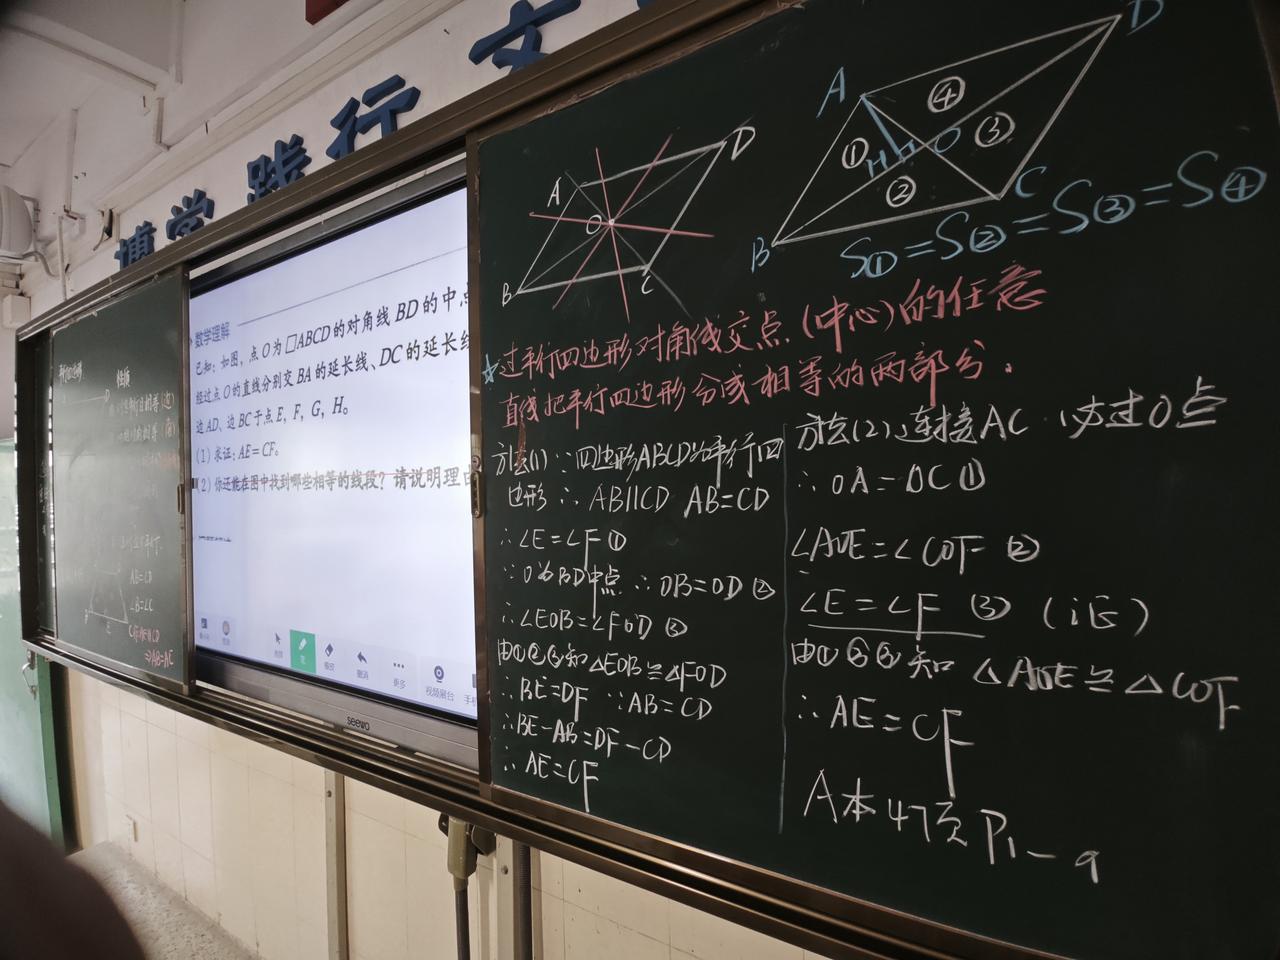 博学 践行
数学理解
已知:如图,点O为□ABCD的对角线BD的中点
经过点O的直线分别交BA的延长线、DC的延长线
边AD、边BC于点E,F,G,H。
(1)求证:AE=CF。
(2)你还能在图中找到哪些相等的线段?请说明理由
更多
视频展台
seewo
性质
AB=CD
∠B=∠C
⇒AB=AC
A
D
O
B
C
A
D
④
①
H
O
③
②
B
C
S①=S②=S③=S④
☆过平行四边形对角线交点(中心)的任意
直线把平行四边形分成相等的两部分.
方法(1) ∵四边形ABCD为平行四
边形 ∴AB∥CD AB=CD
∴∠E=∠F①
∵O为BD中点 ∴OB=OD②
∴∠EOB=∠FOD③
由①②③知△EOB≌△FOD
∴BE=DF ∵AB=CD
∴BE-AB=DF-CD
∴AE=CF
方法(2)连接AC 必过O点
∴OA=OC①
∠AOE=∠COF②
∠E=∠F③(证)
由①②③知 △AOE≌△COF
∴AE=CF
A本47页P1-9